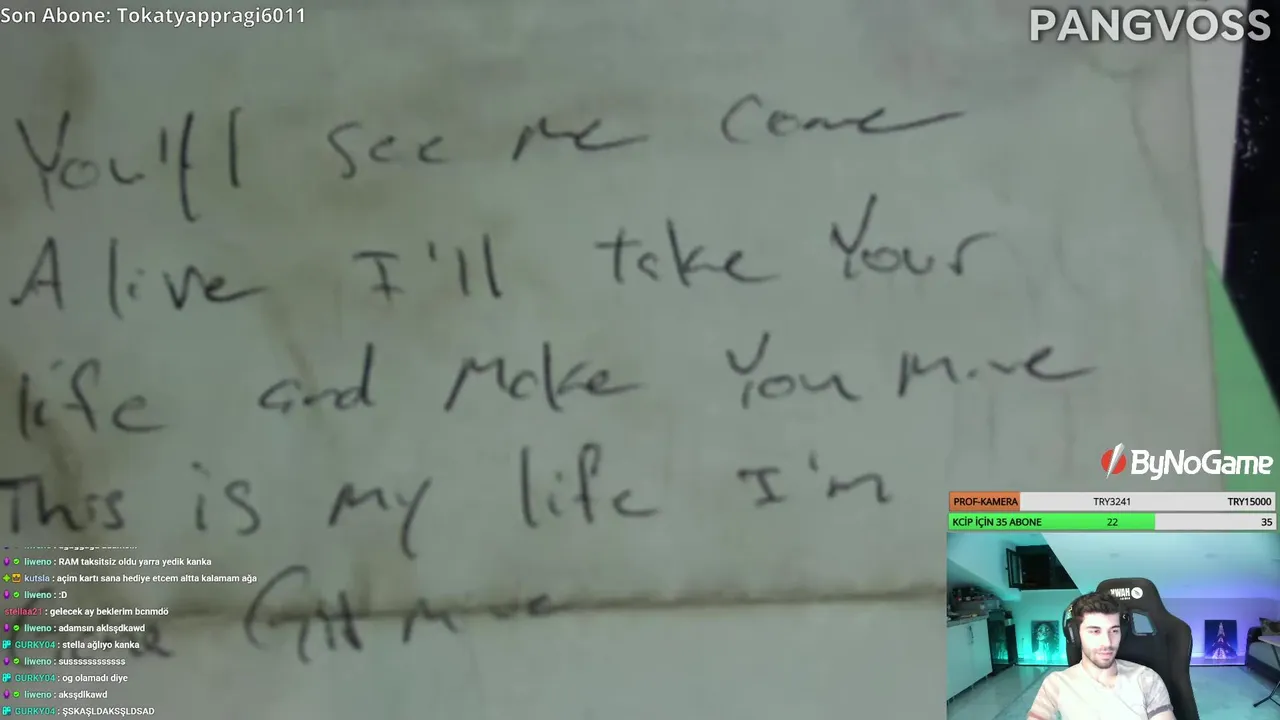 Son Abone: Tokatyappragi6011
PANGVOSS
You'll see me come
Alive I'll take Your
life and make You mine
This is my life I'm
ByNoGame
PROF-KAMERA TRY3241 TRY15000
KCİP İÇİN 35 ABONE 22 35
liweno : RAM taksitsiz oldu yarra yedik kanka
kutsla : açim kartı sana hediye etcem altta kalamam ağa
liweno : :D
stellaa21 : gelecek ay beklerim bcnmdö
liweno : adamsın aklsşdkawd
GURKY04 : stella ağlıyo kanka
liweno : susssssssssss
GURKY04 : og olamadı diye
liweno : aksşdlkawd
GURKY04 : ŞSKAŞLDAKSŞLDSAD